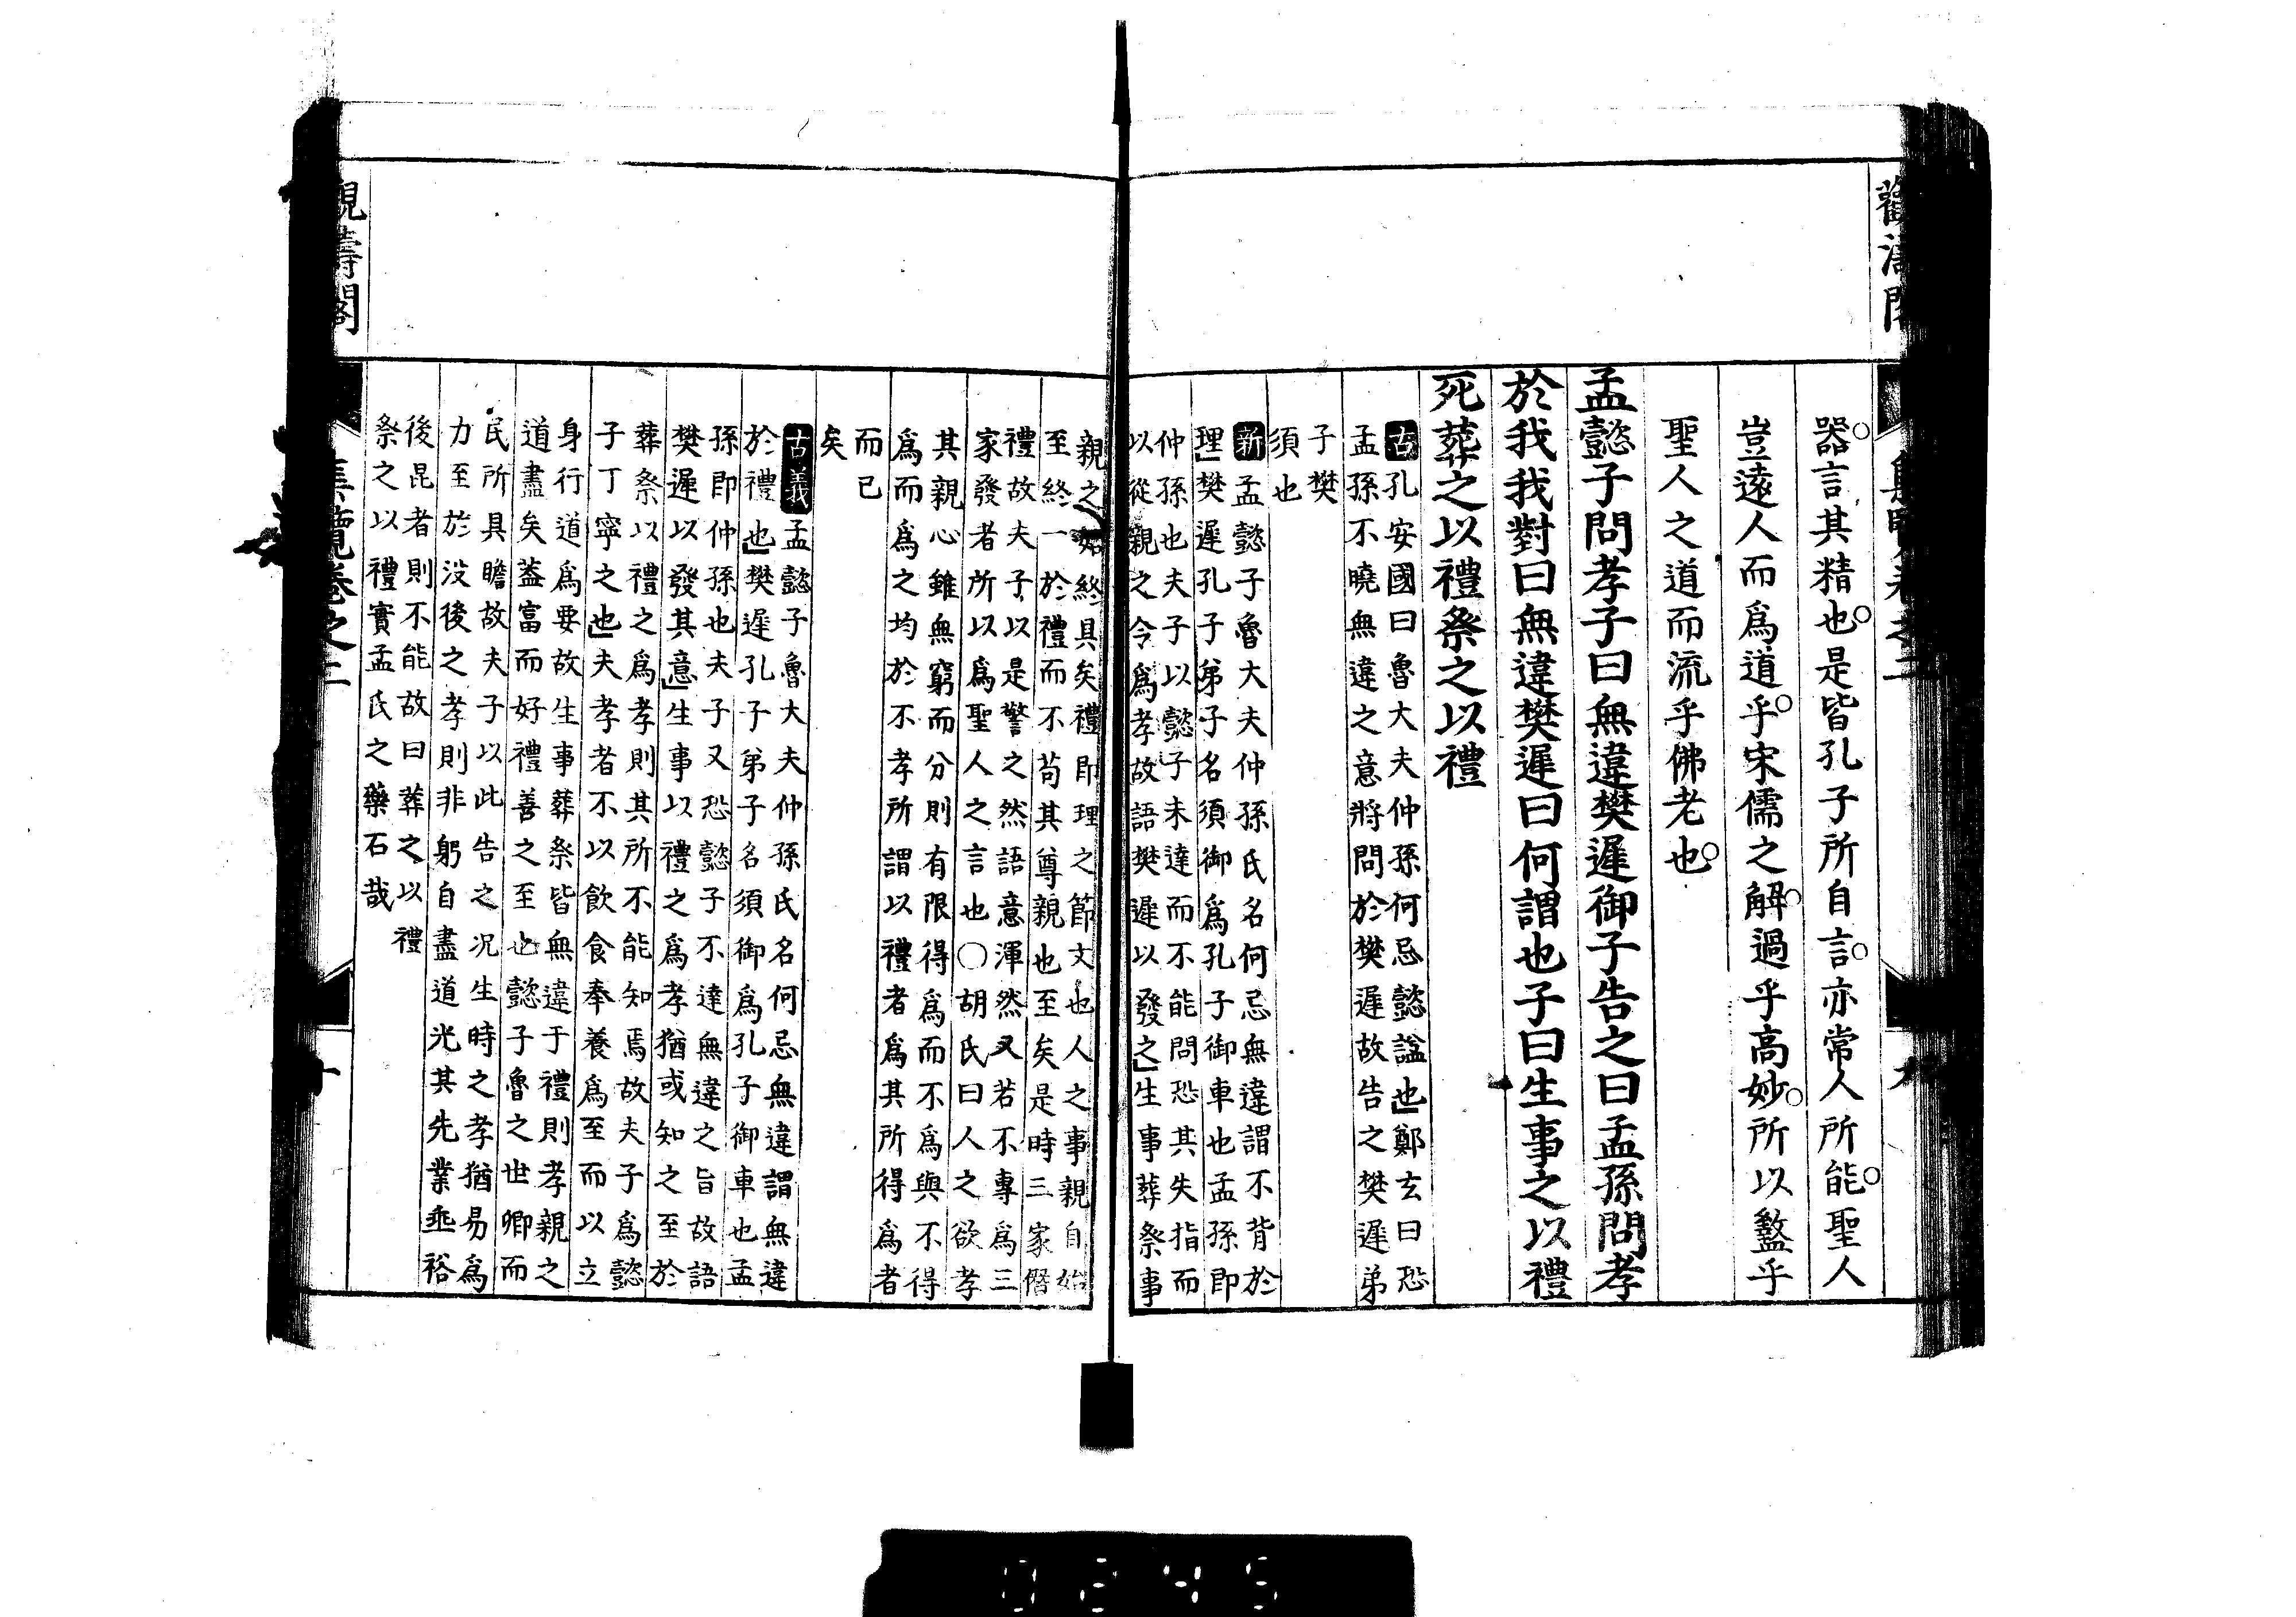 器言其精也是皆孔子所自言亦常人所能聖人
豈遠人而爲道乎宋儒之解過乎高妙所以盭乎
聖人之道而流乎佛老也
孟懿子問孝子曰無違樊遲御子告之曰孟孫問孝
於我我對曰無違樊遲曰何謂也子曰生事之以禮
死葬之以禮祭之以禮
古孔安國曰魯大夫仲孫何忌懿諡也鄭玄曰恐
孟孫不曉無違之意將問於樊遲故告之樊遲弟
子樊
須也
新孟懿子魯大夫仲孫氏名何忌無違謂不背於
理樊遲孔子弟子名須御爲孔子御車也孟孫即
仲孫也夫子以懿子未達而不能問恐其失指而
以從親之令爲孝故語樊遲以發之生事葬祭事
親之始終具矣禮即理之節文也人之事親自始
至終一於禮而不苟其尊親也至矣是時三家僭
禮故夫子以是警之然語意渾然又若不專爲三
家發者所以爲聖人之言也○胡氏曰人之欲孝
其親心雖無窮而分則有限得爲而不爲與不得
爲而爲之均於不孝所謂以禮者爲其所得爲者
而已
矣
古義孟懿子魯大夫仲孫氏名何忌無違謂無違
於禮也樊遲孔子弟子名須御爲孔子御車也孟
孫即仲孫也夫子又恐懿子不達無違之旨故語
樊遲以發其意生事以禮之爲孝猶或知之至於
葬祭以禮之爲孝則其所不能知焉故夫子爲懿
子丁寧之也夫孝者不以飲食奉養爲至而以立
身行道爲要故生事葬祭皆無違于禮則孝親之
道盡矣蓋富而好禮善之至也懿子魯之世卿而
民所具瞻故夫子以此告之况生時之孝猶易爲
力至於没後之孝則非躬自盡道光其先業垂裕
後昆者則不能故曰葬之以禮
祭之以禮實孟氏之藥石哉
集覽卷之二
十
0245